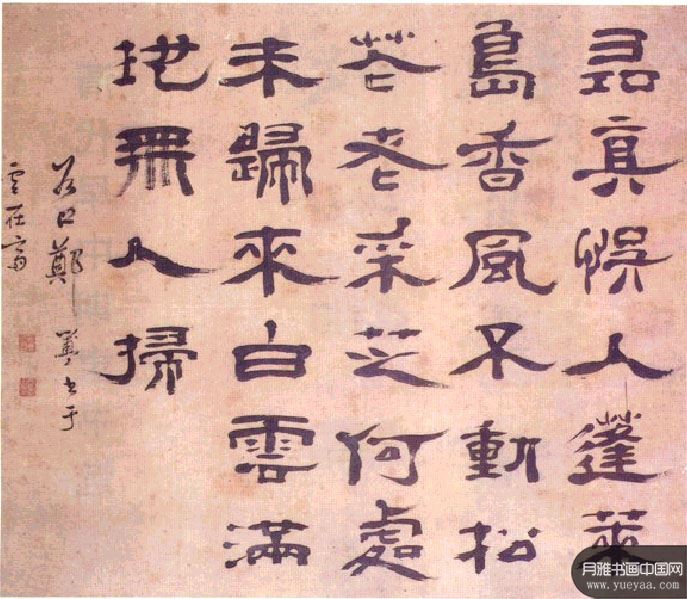 尋真悮入蓬萊
島香風不動松
花老采芝何處
未歸來白雲滿
地無人掃
谷口鄭簠書于
在
月雅书画中国网
www.yueyaa.com